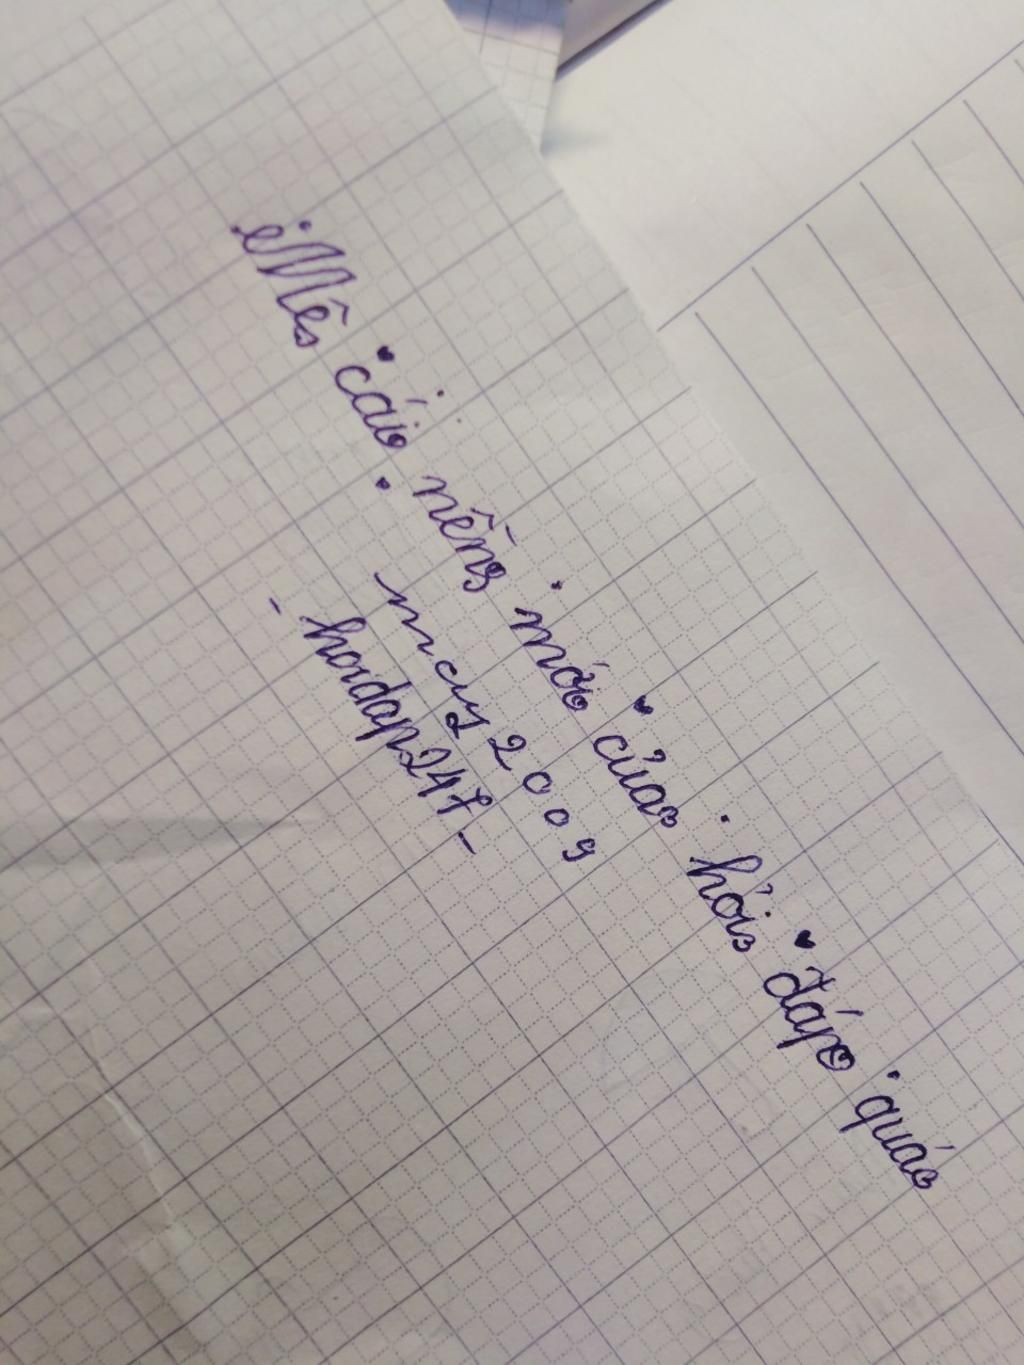 Mês cáio nềng mớio củao hỏis đápo quáo
mcy2009
- hoidap247 -